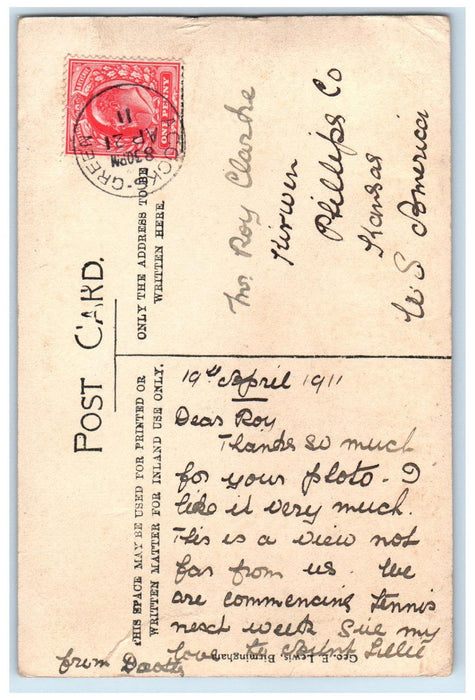 POST CARD.
THIS SPACE MAY BE USED FOR PRINTED OR
WRITTEN MATTER FOR INLAND USE ONLY.
ONLY THE ADDRESS TO BE
WRITTEN HERE.
ONE PENNY
ACOCK'S GREEN
8.30PM
AP 21
11
Mr. Roy Clarke
Kirwen
Phillips Co
Kansas
U.S America
19th April 1911
Dear Roy
Thanks so much
for your photo - I
like it very much.
This is a view not
far from us. We
are commencing tennis
next week Give my
love to Aunt Lillie
from
Geo. E. Lewis, Birmingham